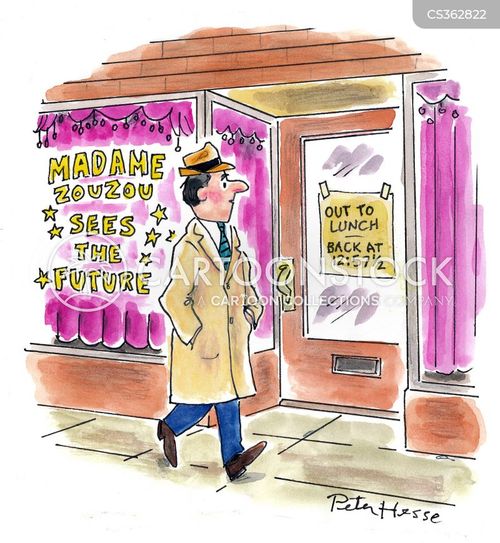 CS362822
MADAME
ZOUZOU
SEES
THE
FUTURE
OUT TO
LUNCH
BACK AT
12:57½
CARTOONSTOCK
CARTOON COLLECTIONS COMPANY
Peter Hesse